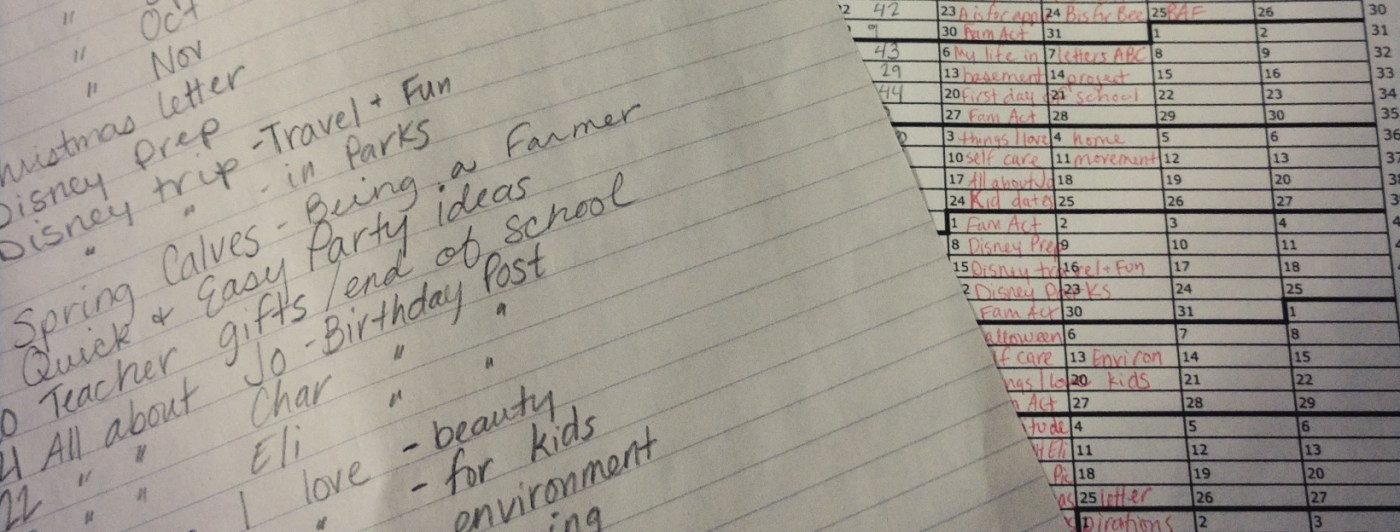 " Oct
" Nov
letter
Disney Prep
Disney trip - Travel + Fun
" " - in Parks
Spring Calves - Being a Farmer
Quick & Easy Party ideas
Teacher gifts / end of school
All about Jo - Birthday Post
22 " " Char " "
" " Eli " "
I love - beauty
" - for kids
environment
ing
42 23 A is for app 24 Bis for Bee 25 BAF 26 30
9 30 Fam Act 31 1 2 31
43 6 My life in 7 letters ABC 8 9 32
29 13 basement 14 project 15 16 33
44 20 First day of 21 school 22 23 34
27 Fam Act 28 29 30 35
3 things I love 4 home 5 6 36
10 self care 11 movement 12 13 37
17 All about Jo 18 19 20
24 Kid dates 25 26 27
1 Fam Act 2 3 4
8 Disney Prep 9 10 11
15 Disney travel + Fun 16 17 18
2 Disney Parks 23 24 25
Fam Act 30 31 1
alloween 6 7 8
f care 13 Environ 14 15
ngs I love 20 kids 21 22
Act 27 28 29
tude 4 5 6
Eli 11 12 13
Pic 18 19 20
as 25 letter 26 27
pirations 2 3